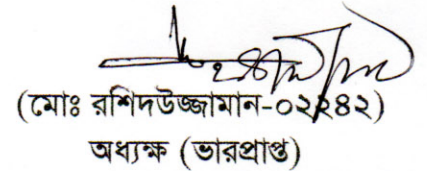 (মোঃ রশিদউজ্জামান-০২২৪২)
অধ্যক্ষ (ভারপ্রাপ্ত)